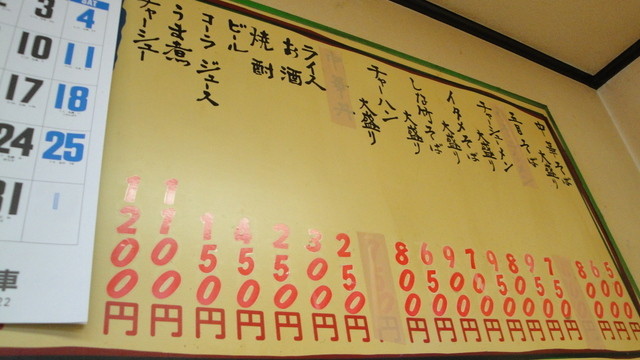 中華そば
大盛り
五目そば
大盛り
チャーシューメン
大盛り
イタメそば
大盛り
しな竹そば
大盛り
チャーハン
大盛り
ライス
お酒
焼酎
ビール
コーラ ジュース
うま煮
チャーシュー
500円
600円
800円
750円
900円
800円
900円
700円
900円
650円
800円
250円
300円
250円
450円
150円
1100円
1200円
SAT
3 4
10 11
17 18
24 25
31 1
車
22